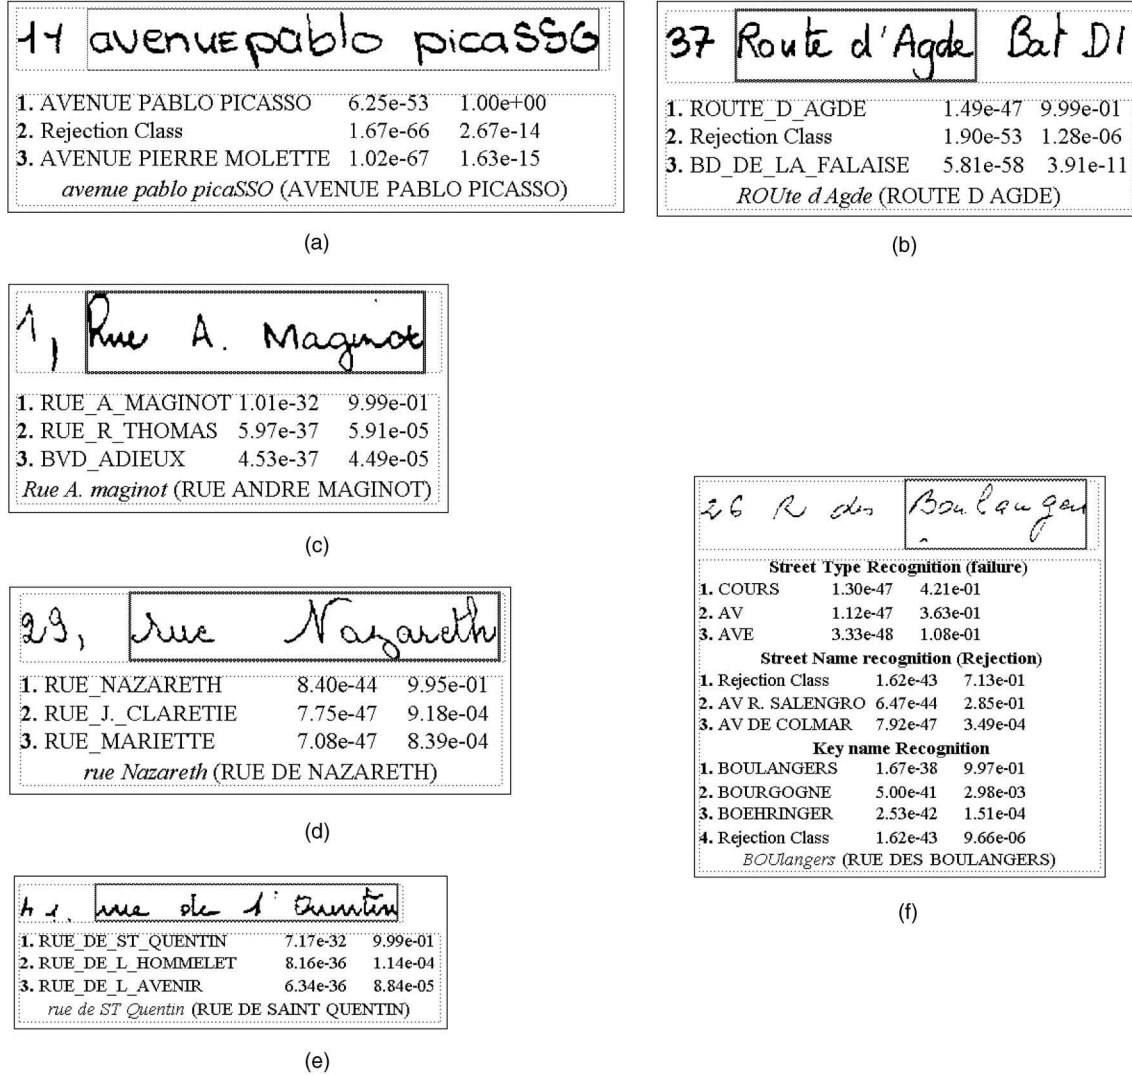 11 avenue pablo picaSSO
1. AVENUE PABLO PICASSO 6.25e-53 1.00e+00
2. Rejection Class 1.67e-66 2.67e-14
3. AVENUE PIERRE MOLETTE 1.02e-67 1.63e-15
avenue pablo picaSSO (AVENUE PABLO PICASSO)
(a)
37 Route d'Agde Bat D1
1. ROUTE_D_AGDE 1.49e-47 9.99e-01
2. Rejection Class 1.90e-53 1.28e-06
3. BD_DE_LA_FALAISE 5.81e-58 3.91e-11
ROUte d Agde (ROUTE D AGDE)
(b)
1, Rue A. Maginot
1. RUE_A_MAGINOT 1.01e-32 9.99e-01
2. RUE_R_THOMAS 5.97e-37 5.91e-05
3. BVD_ADIEUX 4.53e-37 4.49e-05
Rue A. maginot (RUE ANDRE MAGINOT)
(c)
29, rue Nazareth
1. RUE_NAZARETH 8.40e-44 9.95e-01
2. RUE_J._CLARETIE 7.75e-47 9.18e-04
3. RUE_MARIETTE 7.08e-47 8.39e-04
rue Nazareth (RUE DE NAZARETH)
(d)
rue de l' Quentin
1. RUE_DE_ST_QUENTIN 7.17e-32 9.99e-01
2. RUE_DE_L_HOMMELET 8.16e-36 1.14e-04
3. RUE_DE_L_AVENIR 6.34e-36 8.84e-05
rue de ST Quentin (RUE DE SAINT QUENTIN)
(e)
26 R des Boulangers
Street Type Recognition (failure)
1. COURS 1.30e-47 4.21e-01
2. AV 1.12e-47 3.63e-01
3. AVE 3.33e-48 1.08e-01
Street Name recognition (Rejection)
1. Rejection Class 1.62e-43 7.13e-01
2. AV R. SALENGRO 6.47e-44 2.85e-01
3. AV DE COLMAR 7.92e-47 3.49e-04
Key name Recognition
1. BOULANGERS 1.67e-38 9.97e-01
2. BOURGOGNE 5.00e-41 2.98e-03
3. BOEHRINGER 2.53e-42 1.51e-04
4. Rejection Class 1.62e-43 9.66e-06
BOUlangers (RUE DES BOULANGERS)
(f)